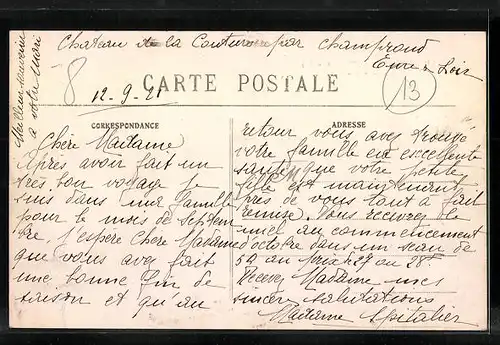 Chateau de la Couture par Champrond
Eure & Loir
Meilleur souvenir
à votre mari
8
12-9-21
13
CARTE POSTALE
CORRESPONDANCE
ADRESSE
Chère Madame
Après avoir fait un
très bon voyage je
suis dans ma famille
pour le mois de septem
bre. J'espère Chère Madame
que vous avez fait
une bonne fin de
saison et qu'au
retour vous avez trouvé
votre famille en excellente
santé que votre petite
fille est maintenant
près de vous tout à fait
remise. Vous recevrez le
miel au commencement
d'octobre dans un seau de
au prix
Recevez Madame mes
sincères salutations
Madame Spitalier